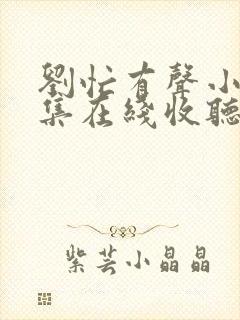 劉忙有聲小
集在綫收聽
紫芸小晶晶